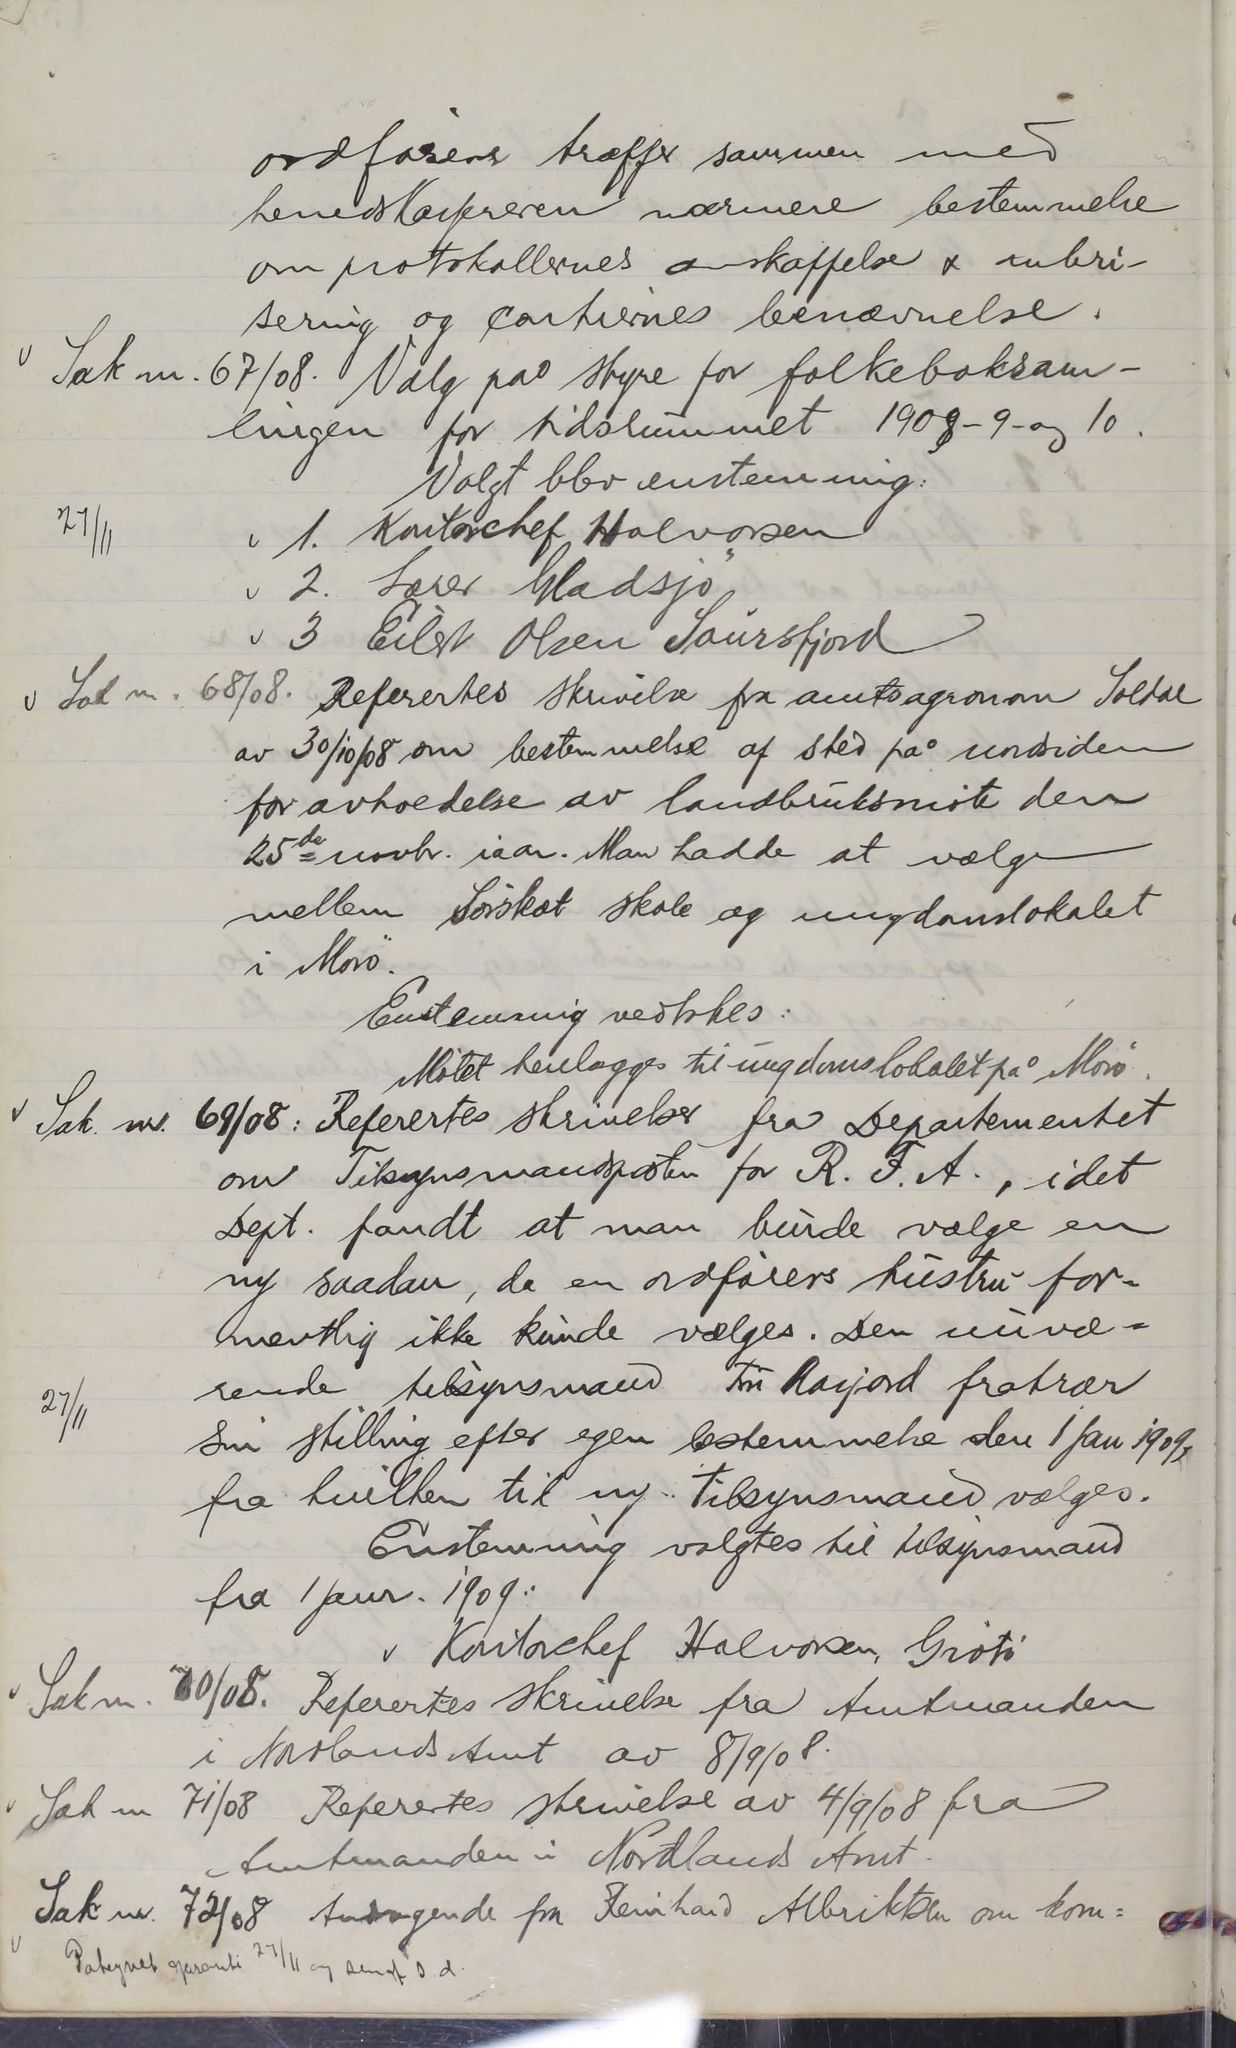 ordførerer træffer sammen med
herredskassereren nærmere bestemmelse
om protokollernes anskaffelse & rubri-
sering og contiernes benævnelse.
Sak nr. 67/08. Valg på styre for folkeboksam-
lingen for tidsrummet 1908-9-og 10.
Valgt blev enstemmig:
27/11
1. Kontorchef Halvorsen
2. Lærer Gladsjö
3 Eilert Olsen Saursfjord
Sak nr. 68/08. Refertes skrivelse fra amtsagronom Soldal
av 30/10/08 om bestemmelse af sted på nordsiden
for avholdelse av landbruksmöte den
25de novbr. iaar. Man hadde at vælge
mellem Sörskot skole og ungdomslokalet
i Morö.
Enstemmig vedtokes:
Mötet henlægges til ungdomslokalet på Morö.
Sak nr. 69/08: Referertes skrivelser fra Departementet
om Tilsynsmandsposten for R. F. A., idet
Dept. fandt at man burde vælge en
ny saadan, da en ordförers hustru for-
mentlig ikke kunde vælges. Den nuvæ-
27/11
rende tilsynsmand fru Rasjord fratrær
sin stilling efter egen bestemmelse den 1 Jan 1909,
fra hvilken tid ny Tilsynsmand vælges.
Enstemmig valgtes til tilsynsmand
fra 1 janr. 1909:
Kontorchef Halvorsen, Grötö
Sak nr. 70/08. Referertes skrivelse fra Amtmanden
i Nordlands Amt av 8/9/08.
Sak nr 71/08 Referertes skrivelse av 4/9/08 fra
Amtmanden i Nordlands Amt.
Sak nr. 72/08 Andragende fra Reinhard Albriktsen om kom=
Påtegnet garanti 27/11 og sendt s. d.